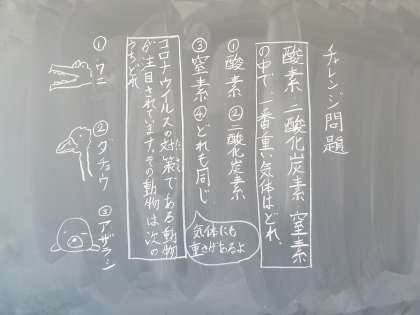 チャレンジ問題
酸素、二酸化炭素、窒素
の中で、一番重い気体はどれ。
①酸素 ②二酸化炭素
③窒素 ④どれも同じ.
気体にも
重さがあるよ
コロナウイルスの対策である動物
が注目されています。その動物は次の
うちどれ
①ワニ ②ダチョウ ③アザラシ